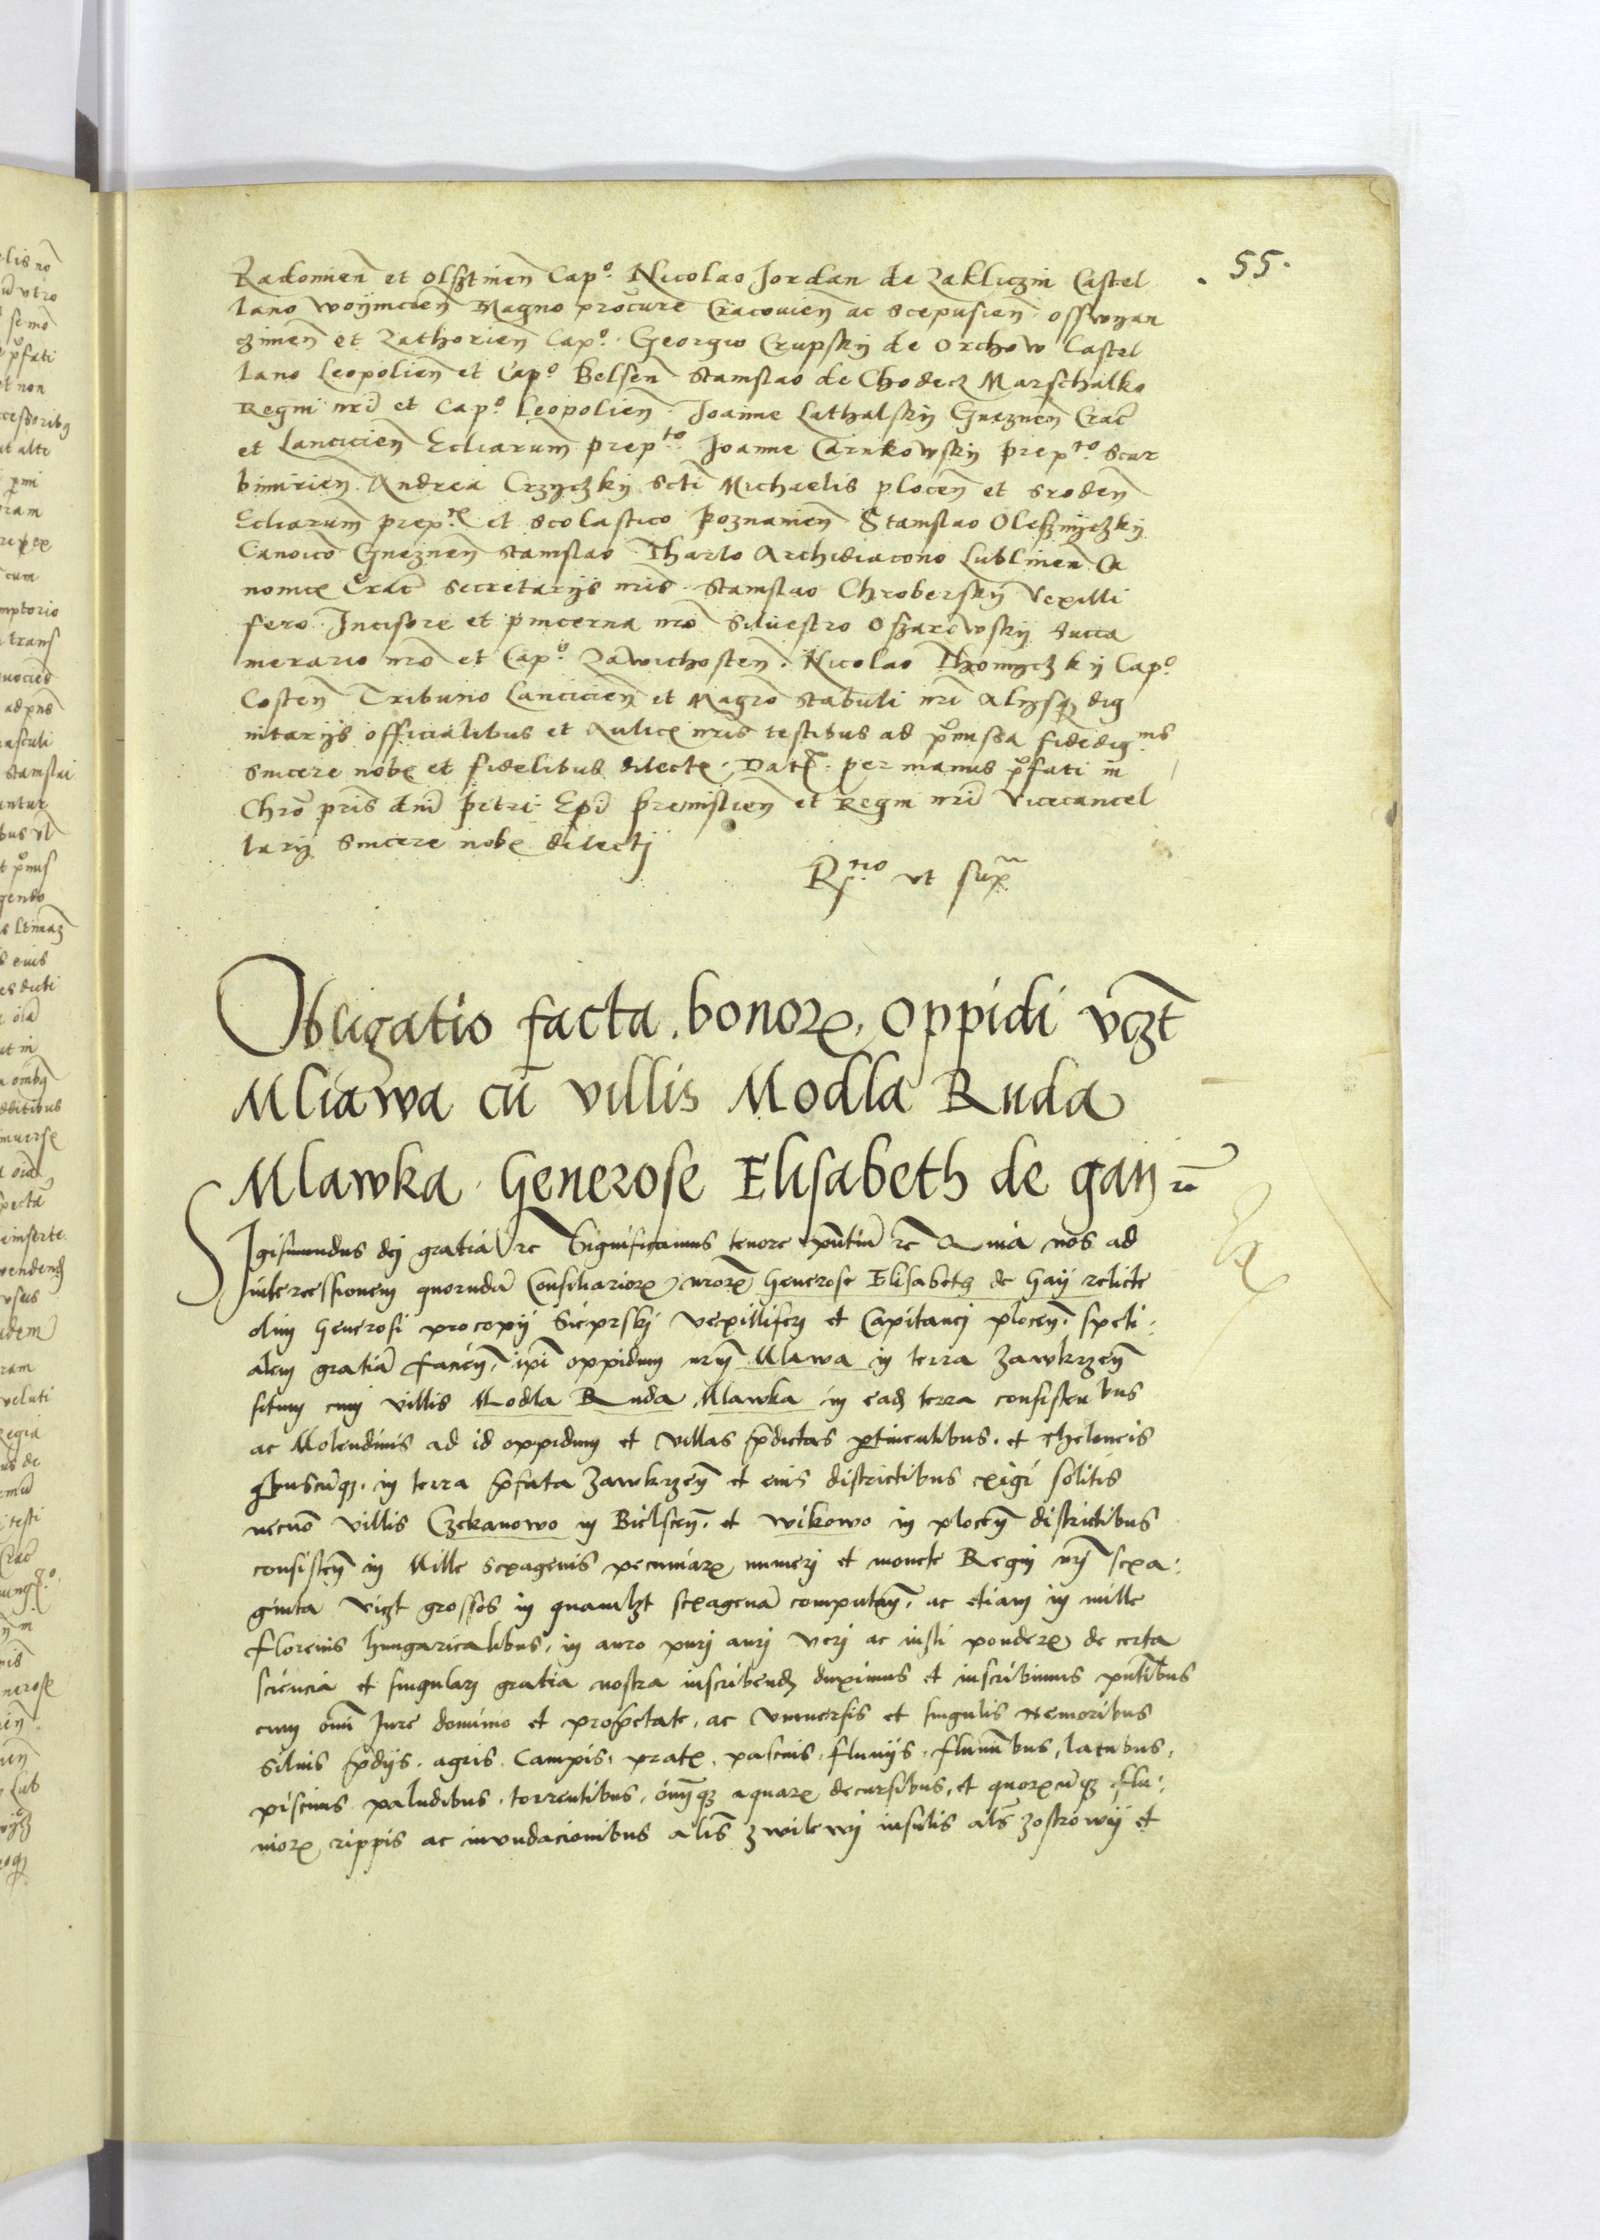 55.
Radomien et Olsztinen Cap.º Nicolao Jordan de Zakliczin Castel
lano Woÿnicien Magno procure Cracovien ac Scepusien osswyan
czimen et Zathorien Cap.º Georgio Crupskÿ de Orchow Castel
lano Leopolien et Cap.º Belsen Stanislao de Chodecz Marschalko
Regni nri et Cap.º Leopolien Joanne Lathalskÿ Gneznen Crac
et Lancicien Ecliarum prep.to Joanne Carnkowskÿ prep.to Scar
bimirien Andrea Crzyczkÿ scti Michaelis plocen et sroden
Ecliarum prep et scolastico poznanien Stanislao Olesznÿczkÿ
Canoico Gneznen Stanislao Tharlo Archidiacono Lublinen Ca
nonico Crac Secretarÿs nris Stanislao Chroberskÿ vexilli
fero Incisore et pincerna nro Siluestro Ozarowskÿ succa
merario nro et Cap.º Zawichosten. Nicolao Thomÿczkÿ Cap.º
Costen Tribuno Lancicien et Magro stabuli nri Alÿsq dig
nitarÿs officialibus et Aulic nris testibus ad pmissa fidedignis
sincere nob et fidelibus dilect. Dat. per manus pfati in
Chro pris dni petri Epi premislien et Regni nri Vicecancel
larÿ sincere nob dilectj
R.tio ut sup
Obligatio facta bonor oppidi vczt
Mliawa cu villis Modla Ruda
Mlawka Generose Elisabeth de gaÿ rc
Sigismundus dej gratia rc Significamus tenore pntiu rc Quia nos ad
intercessionem quorunda Consiliarior nror Generose Elisabeth de Gaÿ relicte
olim Generosi procopÿ Sieprskj vexillifej et Capitanej plocen. speti:
alem gratia facien. ipi oppidum nrm Mlawa in terra Zawkrzen
situm cum villis Modla Ruda Mlawka in ead terra consistentibus
ac Molendinis ad id oppidum et villas pdictas ptinentibus. et theloneis
qbuscuq. in terra pfata Zawkrzen et eius districtibus exigi solitis
necno villis Czekanowo in Bielscen. et wikowo in plocen districtibus
consisten in Mille sexagenis pecuniar numerj et monete Regnj nrj sexa:
ginta vizt grossos in quamlzt sexagena computan. ac etiam in mille
Florenis hungaricalibus. in auro purj aurj verj ac iusti ponder de certa
sciencia et singularj gratia nostra inscribend duximus et inscribimus pntibus
cum omi Jure dominio et proprietate. ac vniuersis et singulis Nemoribus
Siluis pdijs. agris. Campis. prat. pascuis. fluuÿs. fluminibus. lacubus.
piscinis paludibus. torrentibus. omnq aquar decursibus. et quorcuq flu:
uior rippis ac inundacionibus alis zwilewj insulis als zostrowÿ et